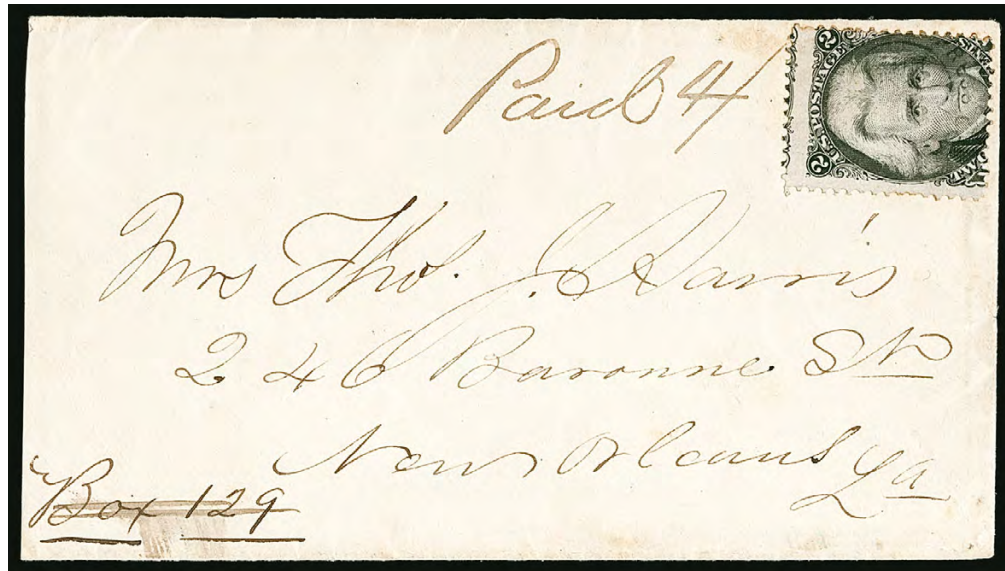 Paid 4
2 U.S. POSTAGE 2
Mrs Tho[s]. J. Harris
246 Baronne St
New Orleans La
Box 129